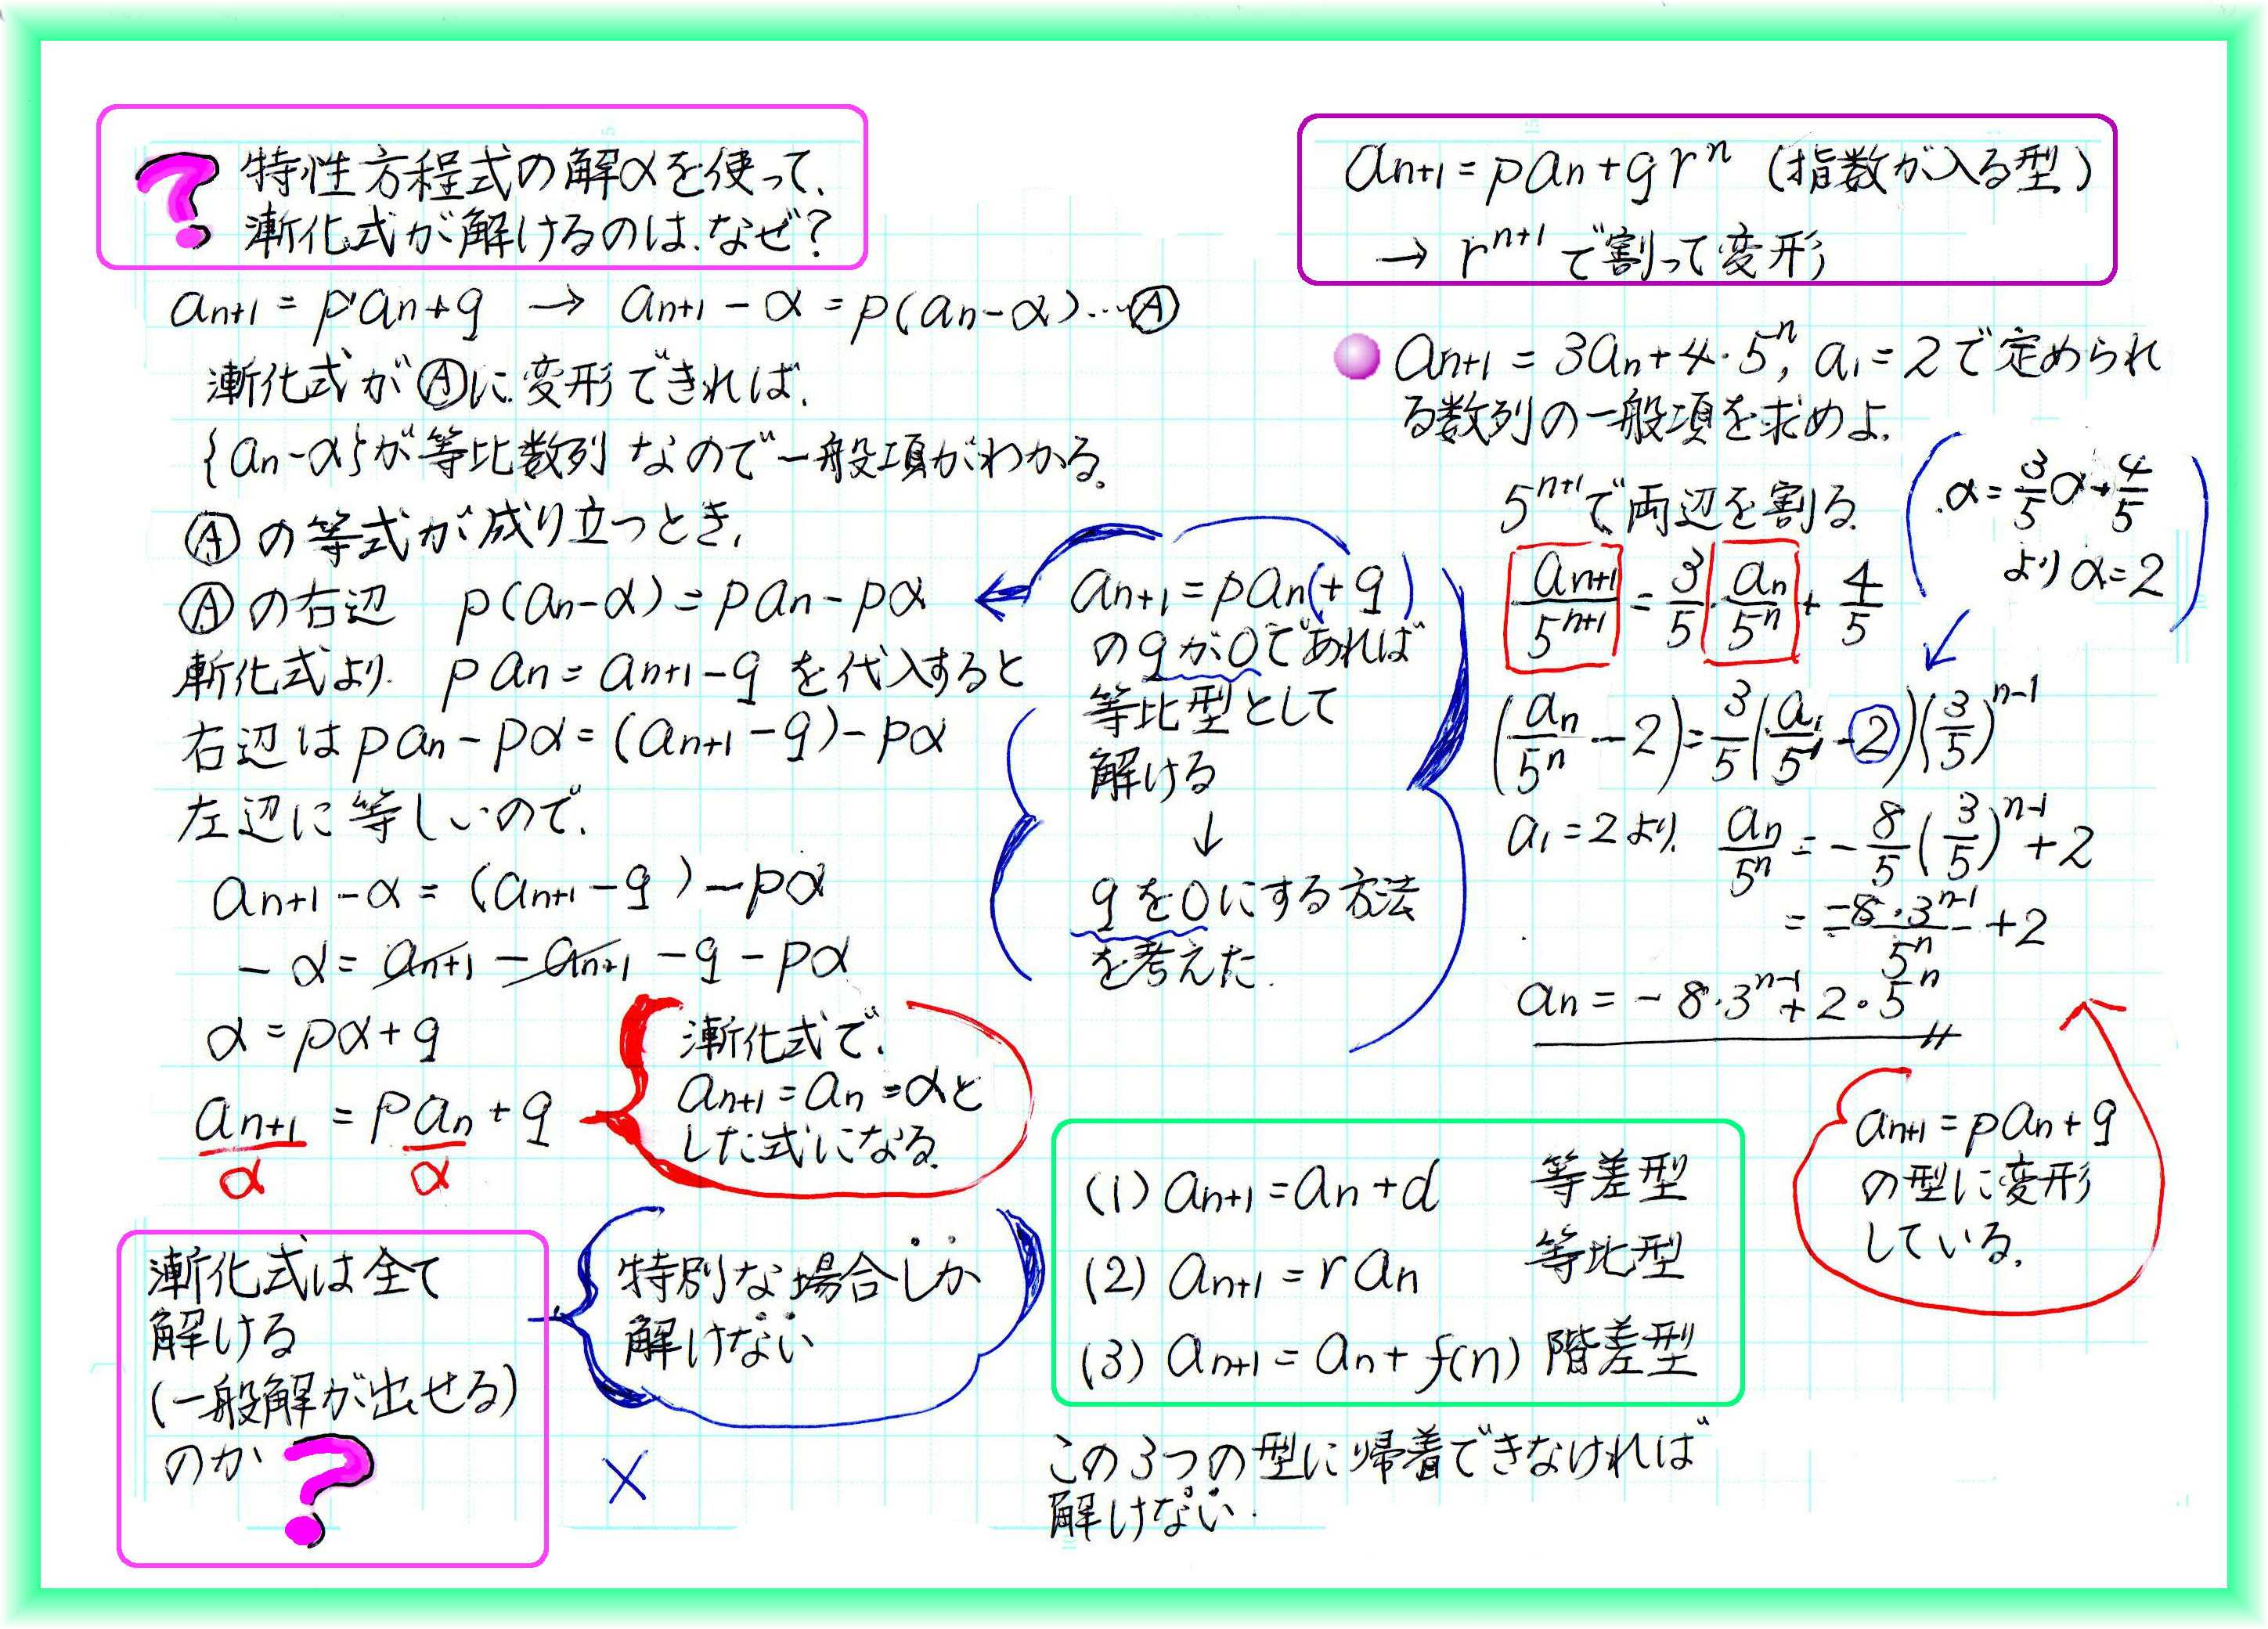 特性方程式の解αを使って、
漸化式が解けるのは、なぜ？
an+1 = pan+q → an+1 - α = p(an-α)…Ⓐ
漸化式がⒶに変形できれば、
{an-α}が等比数列なので一般項がわかる。
Ⓐの等式が成り立つとき、
Ⓐの右辺 p(an-α)=pan-pα
漸化式より、pan=an+1-q を代入すると
右辺はpan-pα=(an+1-q)-pα
左辺に等しいので、
an+1-α=(an+1-q)-pα
-α=an+1-an+1-q-pα
α=pα+q
an+1=pan+q
α α
漸化式で、
an+1=an=αと
した式になる。
an+1=pan(+q)
のqが0であれば
等比型として
解ける
↓
qを0にする方法
を考えた.
漸化式は全て
解ける
(一般解が出せる)
のか？
特別な場合しか
解けない
×
an+1=pan+qr^n (指数が入る型)
→ r^n+1で割って変形
an+1=3an+4・5^n, a1=2で定められ
る数列の一般項を求めよ.
5^n+1で両辺を割る.
α=3/5α+4/5
よりα=2
an+1/5^n+1=3/5・an/5^n+4/5
(an/5^n-2)=3/5(a1/5^1-2)(3/5)^n-1
a1=2より、an/5^n=-8/5(3/5)^n-1+2
=-8・3^n-1/5^n+2
an=-8・3^n-1+2・5^n
an+1=pan+q
の型に変形
している.
(1) an+1=an+d 等差型
(2) an+1=ran 等比型
(3) an+1=an+f(n) 階差型
この3つの型に帰着できなければ
解けない.